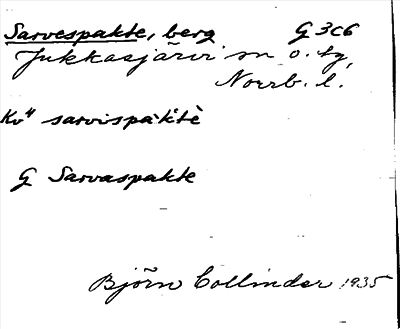 Sarvespakte, berg G 3c6
Jukkasjärvi sn o. tg,
Norrb. l.
Kv" sarvispa·k'tè
G Sarvaspakte
Björn Collinder 1935